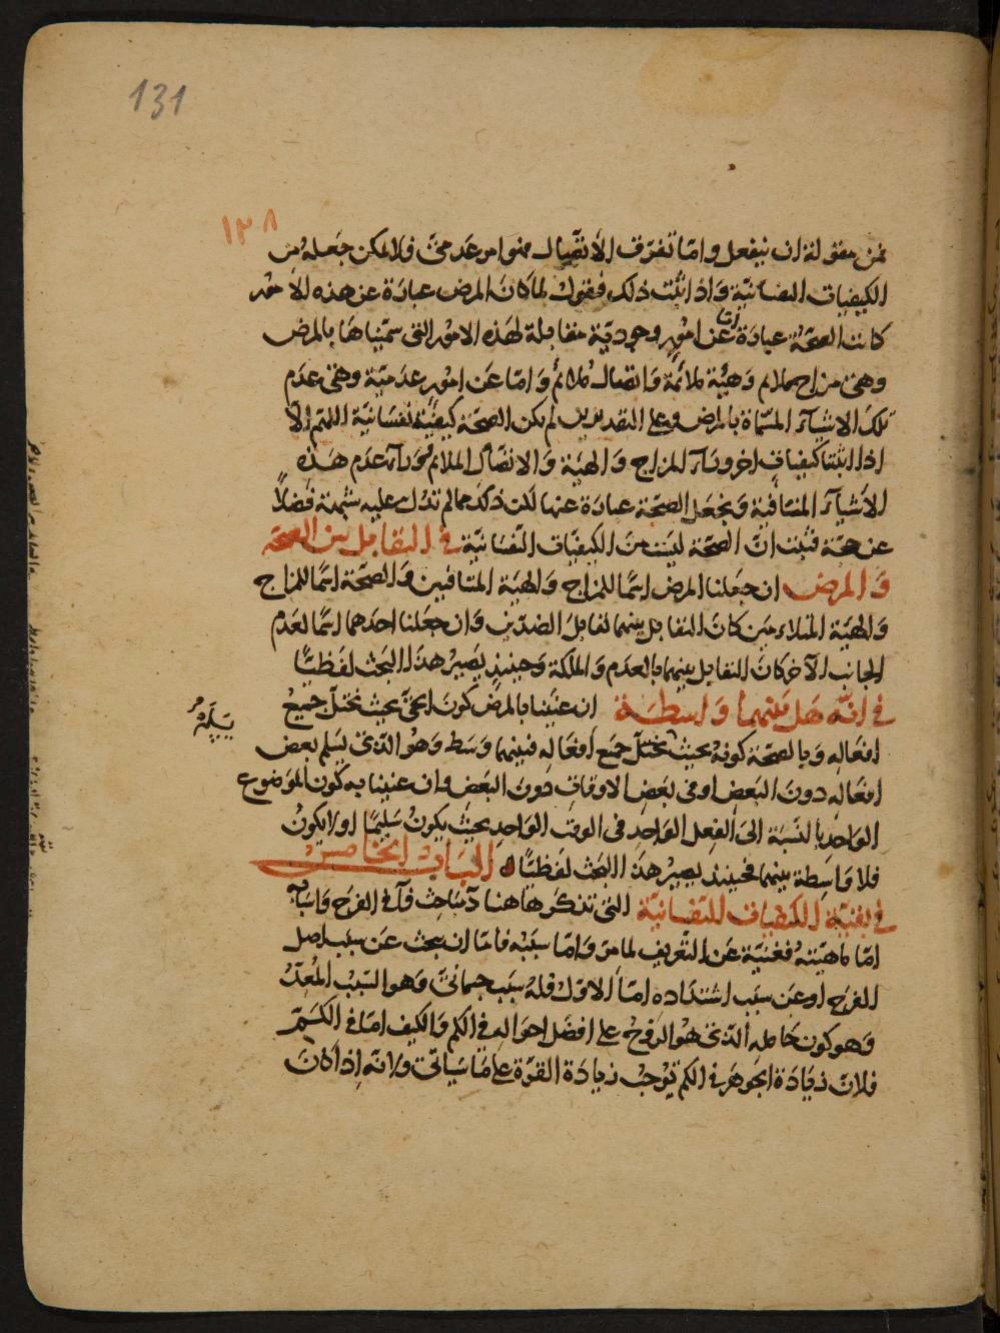 131
١٣٨
فمن مقولة ان ينفعل واما تفرق الاتصال فهو امر عدمى فلا يمكن جعله من
الكيفيات النفسانية واذا ثبت ذلك فنقول لما كان المرض عبادة عن هذه الامور
كانت الصحة عبادة عن امور وجودية مقابلة لهذه الامور التى سميناها بالمرض
وهى مزاج ملائم وهيئة ملائمة واتصال ملائم واما عن امور عدمية وهى عدم
تلك الاشياء المسماة بالمرض وعلى التقديرين لم يكن الصحة كيفية نفسانية اللهم الا
اذا اثبتنا كيفيات اخر وراء المزاج والهيئة والاتصال الملائم ووراء عدم هذه
الاشياء المتنافية ونجعل الصحة عبادة عنها لكن ذلك مما لم تدل عليه شبهة فضلا
عن حجة فثبت ان الصحة ليست من الكيفيات النفسانية فى التقابل بين الصحة
والمرض ان جعلنا المرض اسما للمزاج والهيئة المتنافيين والصحة اسما للمزاج
والهيئة المتلائمين كان التقابل بينهما تقابل الضدين وان جعلنا احدهما اسما لعدم
الجانب الآخر كان التقابل بينهما بالعدم والملكة وحينئذ يصير هذا البحث لفظيا
فى انه هل بينهما واسطة ان عنينا بالمرض كون الحى بحيث يختل جميع
افعاله وبالصحة كونه بحيث يختل جميع افعاله فبينهما وسط وهو الذى يسلم بعض
افعاله دون البعض او فى بعض الاوقات دون البعض وان عنينا به كون الموضوع
الواحد بالنسبة الى الفعل الواحد فى الوقت الواحد بحيث يكون سليما اولا يكون
فلا واسطة بينهما فحينئذ يصير هذا البحث لفظيا الباب الخامس
فى بقية الكيفيات النفسانية التى نذكرها هنا مباحث فآ فى الفرح واسبابه
اما ماهيته فغنية عن التعريف لما مر واما سببه فاما ان يبحث عن سبب اصل
الفرح او عن سبب اشتداده اما الاول فله سبب جسمانى وهو السبب المعد
وهو كون حامله الذى هو الروح على افضل احواله فى الكم والكيف اما فى الكم
فلان زيادة الجوهر فى الكم توجب زيادة القوة على ما سيأتى ولانه اذا كان